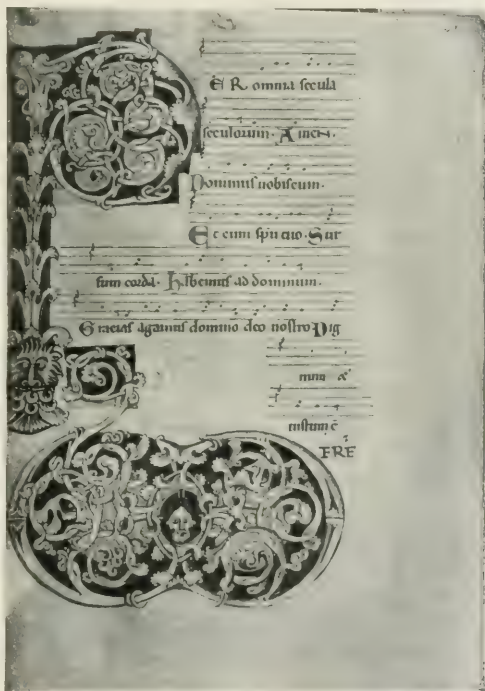 ER omnia secula
seculorum. Amen.
Dominus uobiscum.
Et cum spū tuo. Sur
sum corda. Habemus ad dominum.
Gracias agamus domino deo nostro Dig
num &
iustum ē